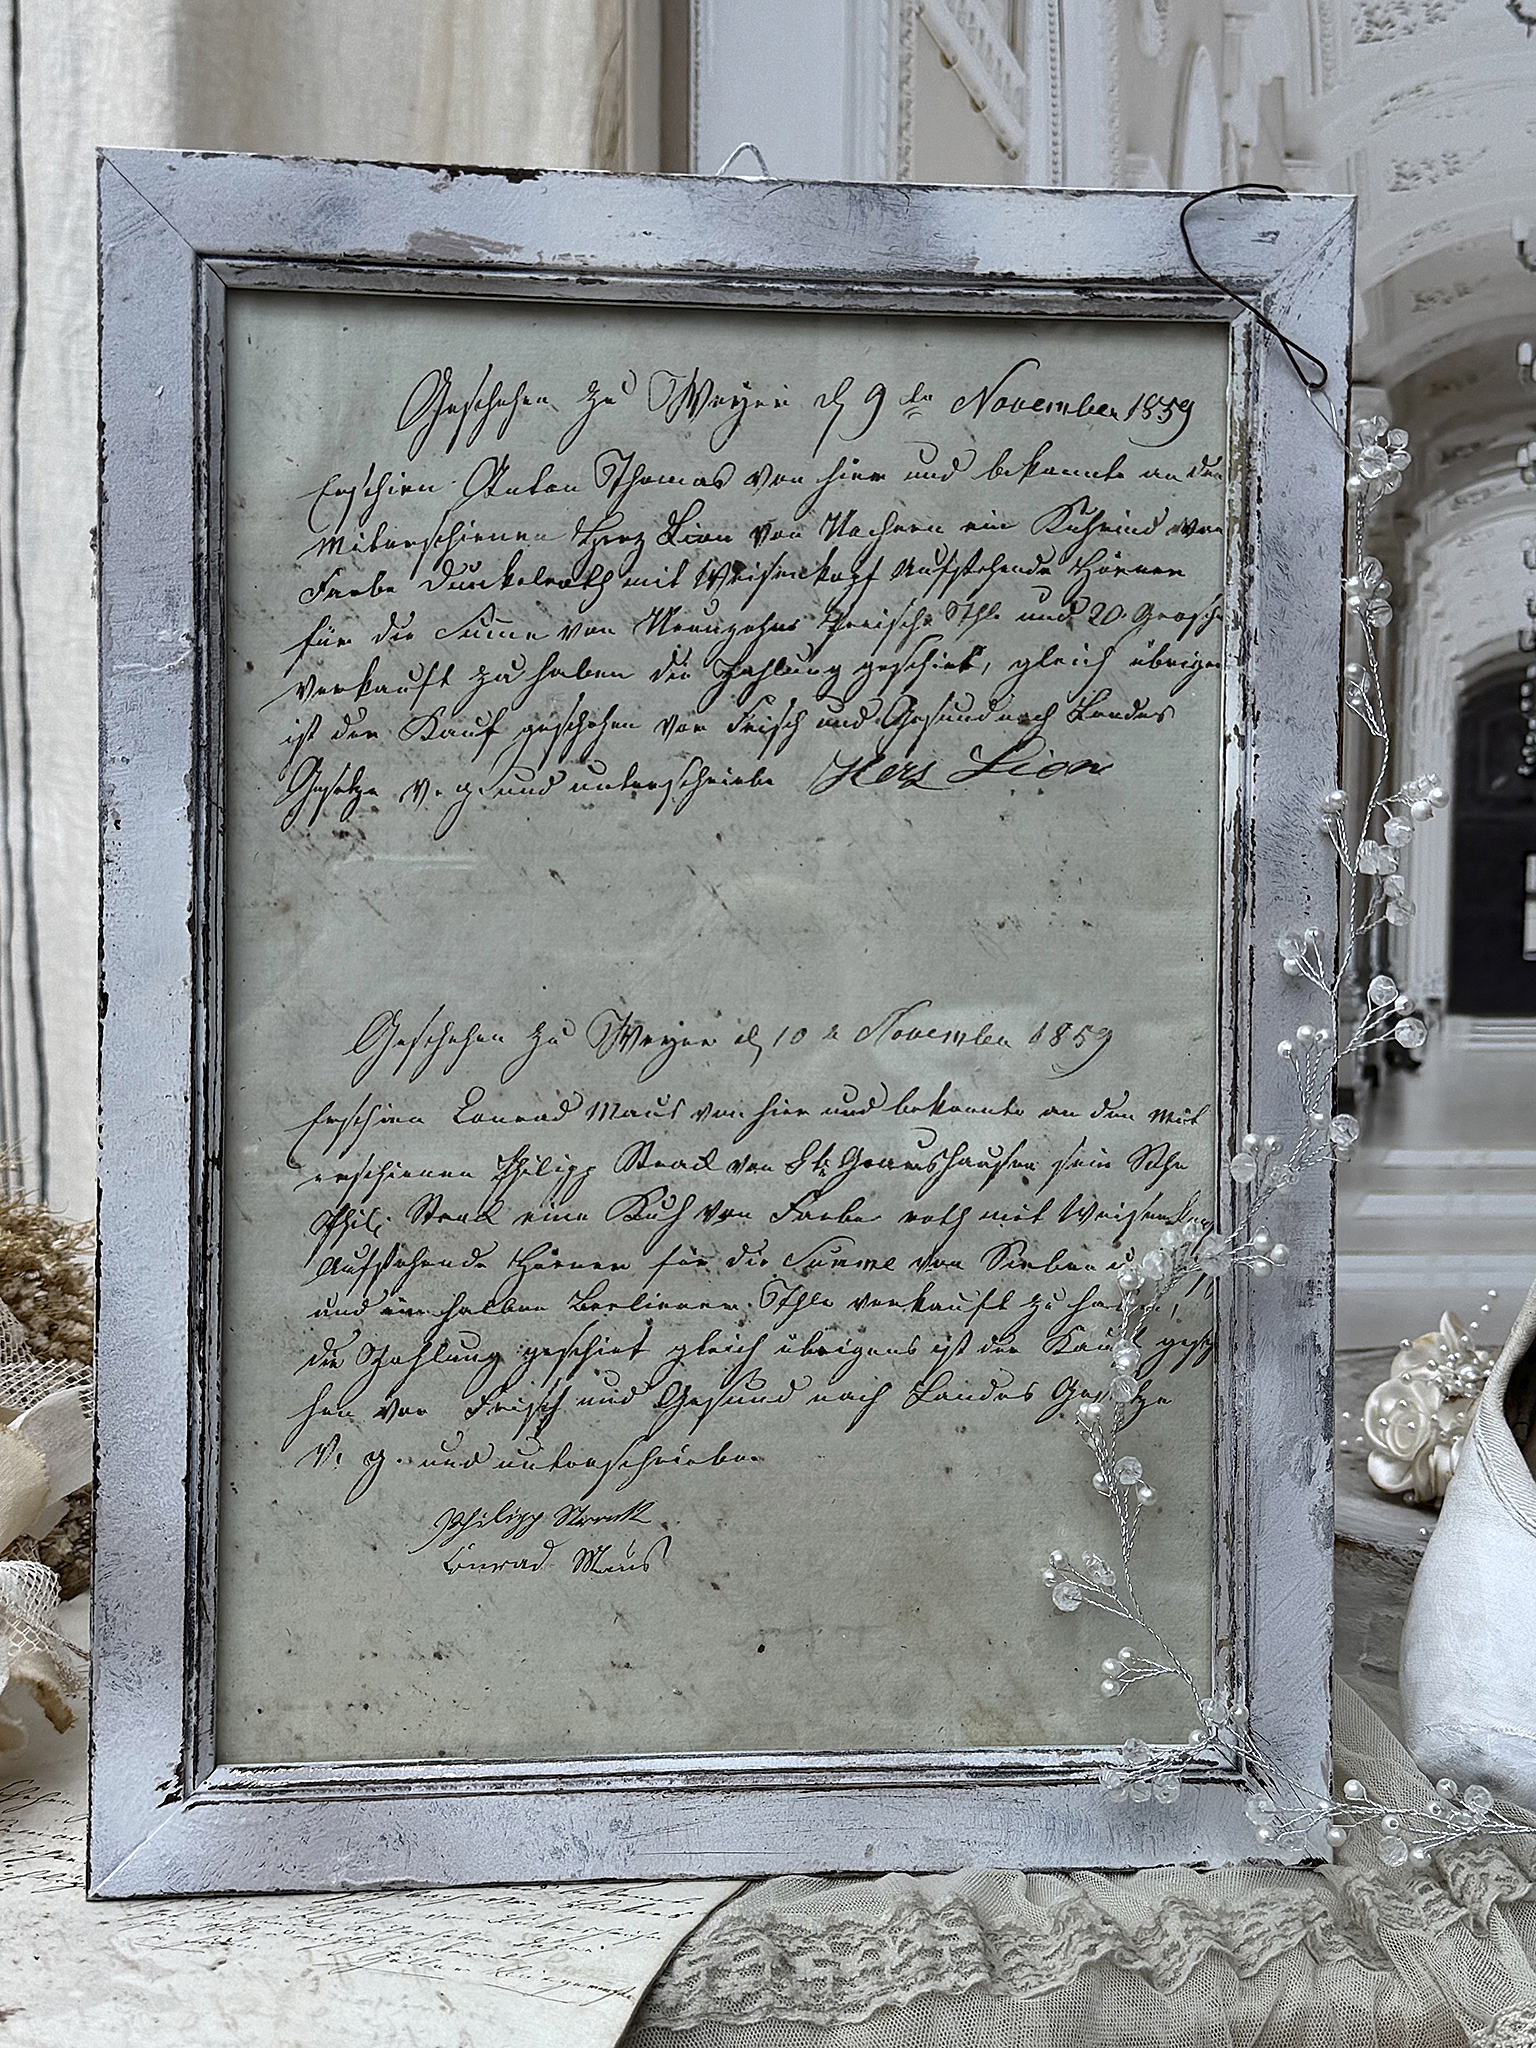 Geschehen zu Weyer d 9ten November 1859
Erschien Anton Thomas von hier und bekannte an den
Miterschienen Herz Lion von Nochern ein Kuhrind von
Farbe Dunkelroth mit Weisenkopf Aufstehende Hörner
für die Summe von Neunzehn Preisch. Thlr und 20 Grosche
verkauft zu haben die Zahlung geschiet, gleich übrigens
ist der Kauf geschehen vor Frisch und Gesund nach Landes
Gesetze V. g. und unterschriebe Herz Lion
Geschehen zu Weyer d 10 November 1859
Erschien Conrad Maus von hier und bekannte an den Mit
erschienen Philipp Strack von St. Goarshausen sein Sohn
Phil. Strack eine Kuh von Farbe roth mit Weisenkopf
Aufstehende Hörner für die Summe von Sieben
und ein halben Berliener Thlr verkauft zu haben,
die Zahlung geschiet gleich übrigens ist der Kauf gesche
hen vor Frisch und Gesund nach Landes Gesetze
V. g. und unterschrieben
Philipp Strack
Conrad Maus